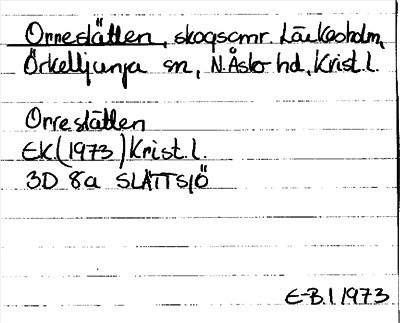 Orreslätten, skogsomr. Lärkesholm,
Örkelljunga sn, N.Åsbo hd, Krist.l.
Orreslätten
EK (1973) Krist.l.
3D 8a SLÄTTSJÖ
E-B.I 1973